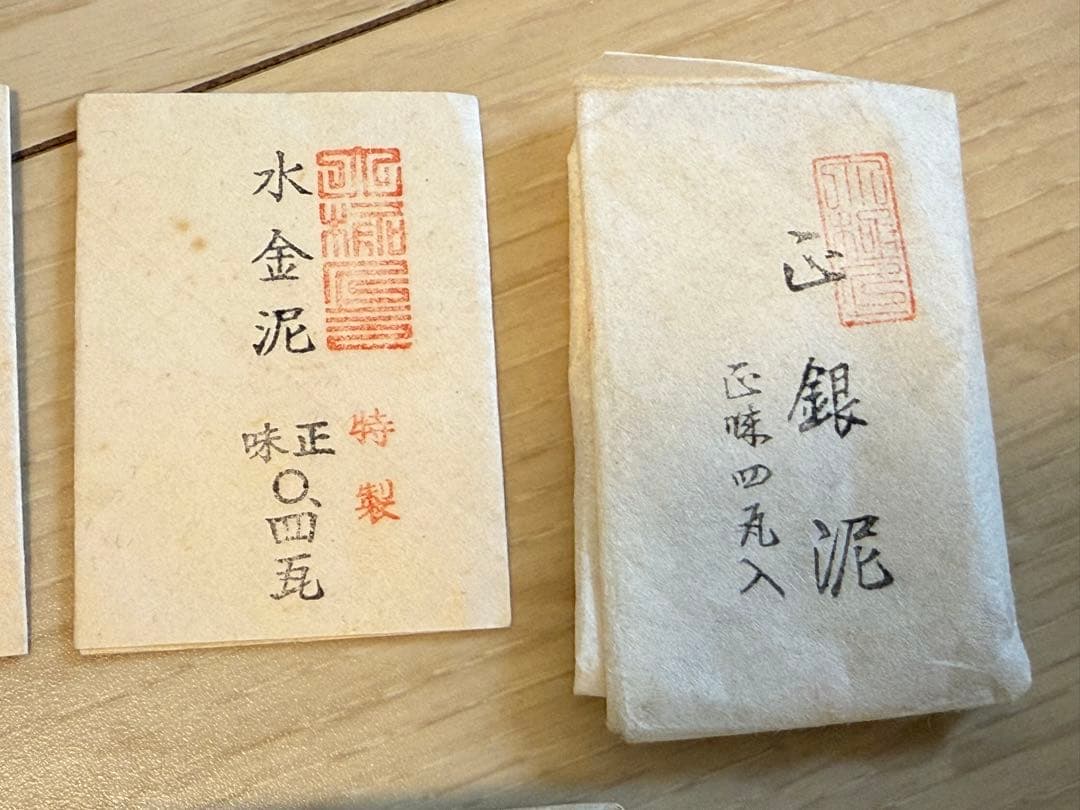 水金泥
特製
正味
〇、四瓦
正銀泥
正味四瓦入